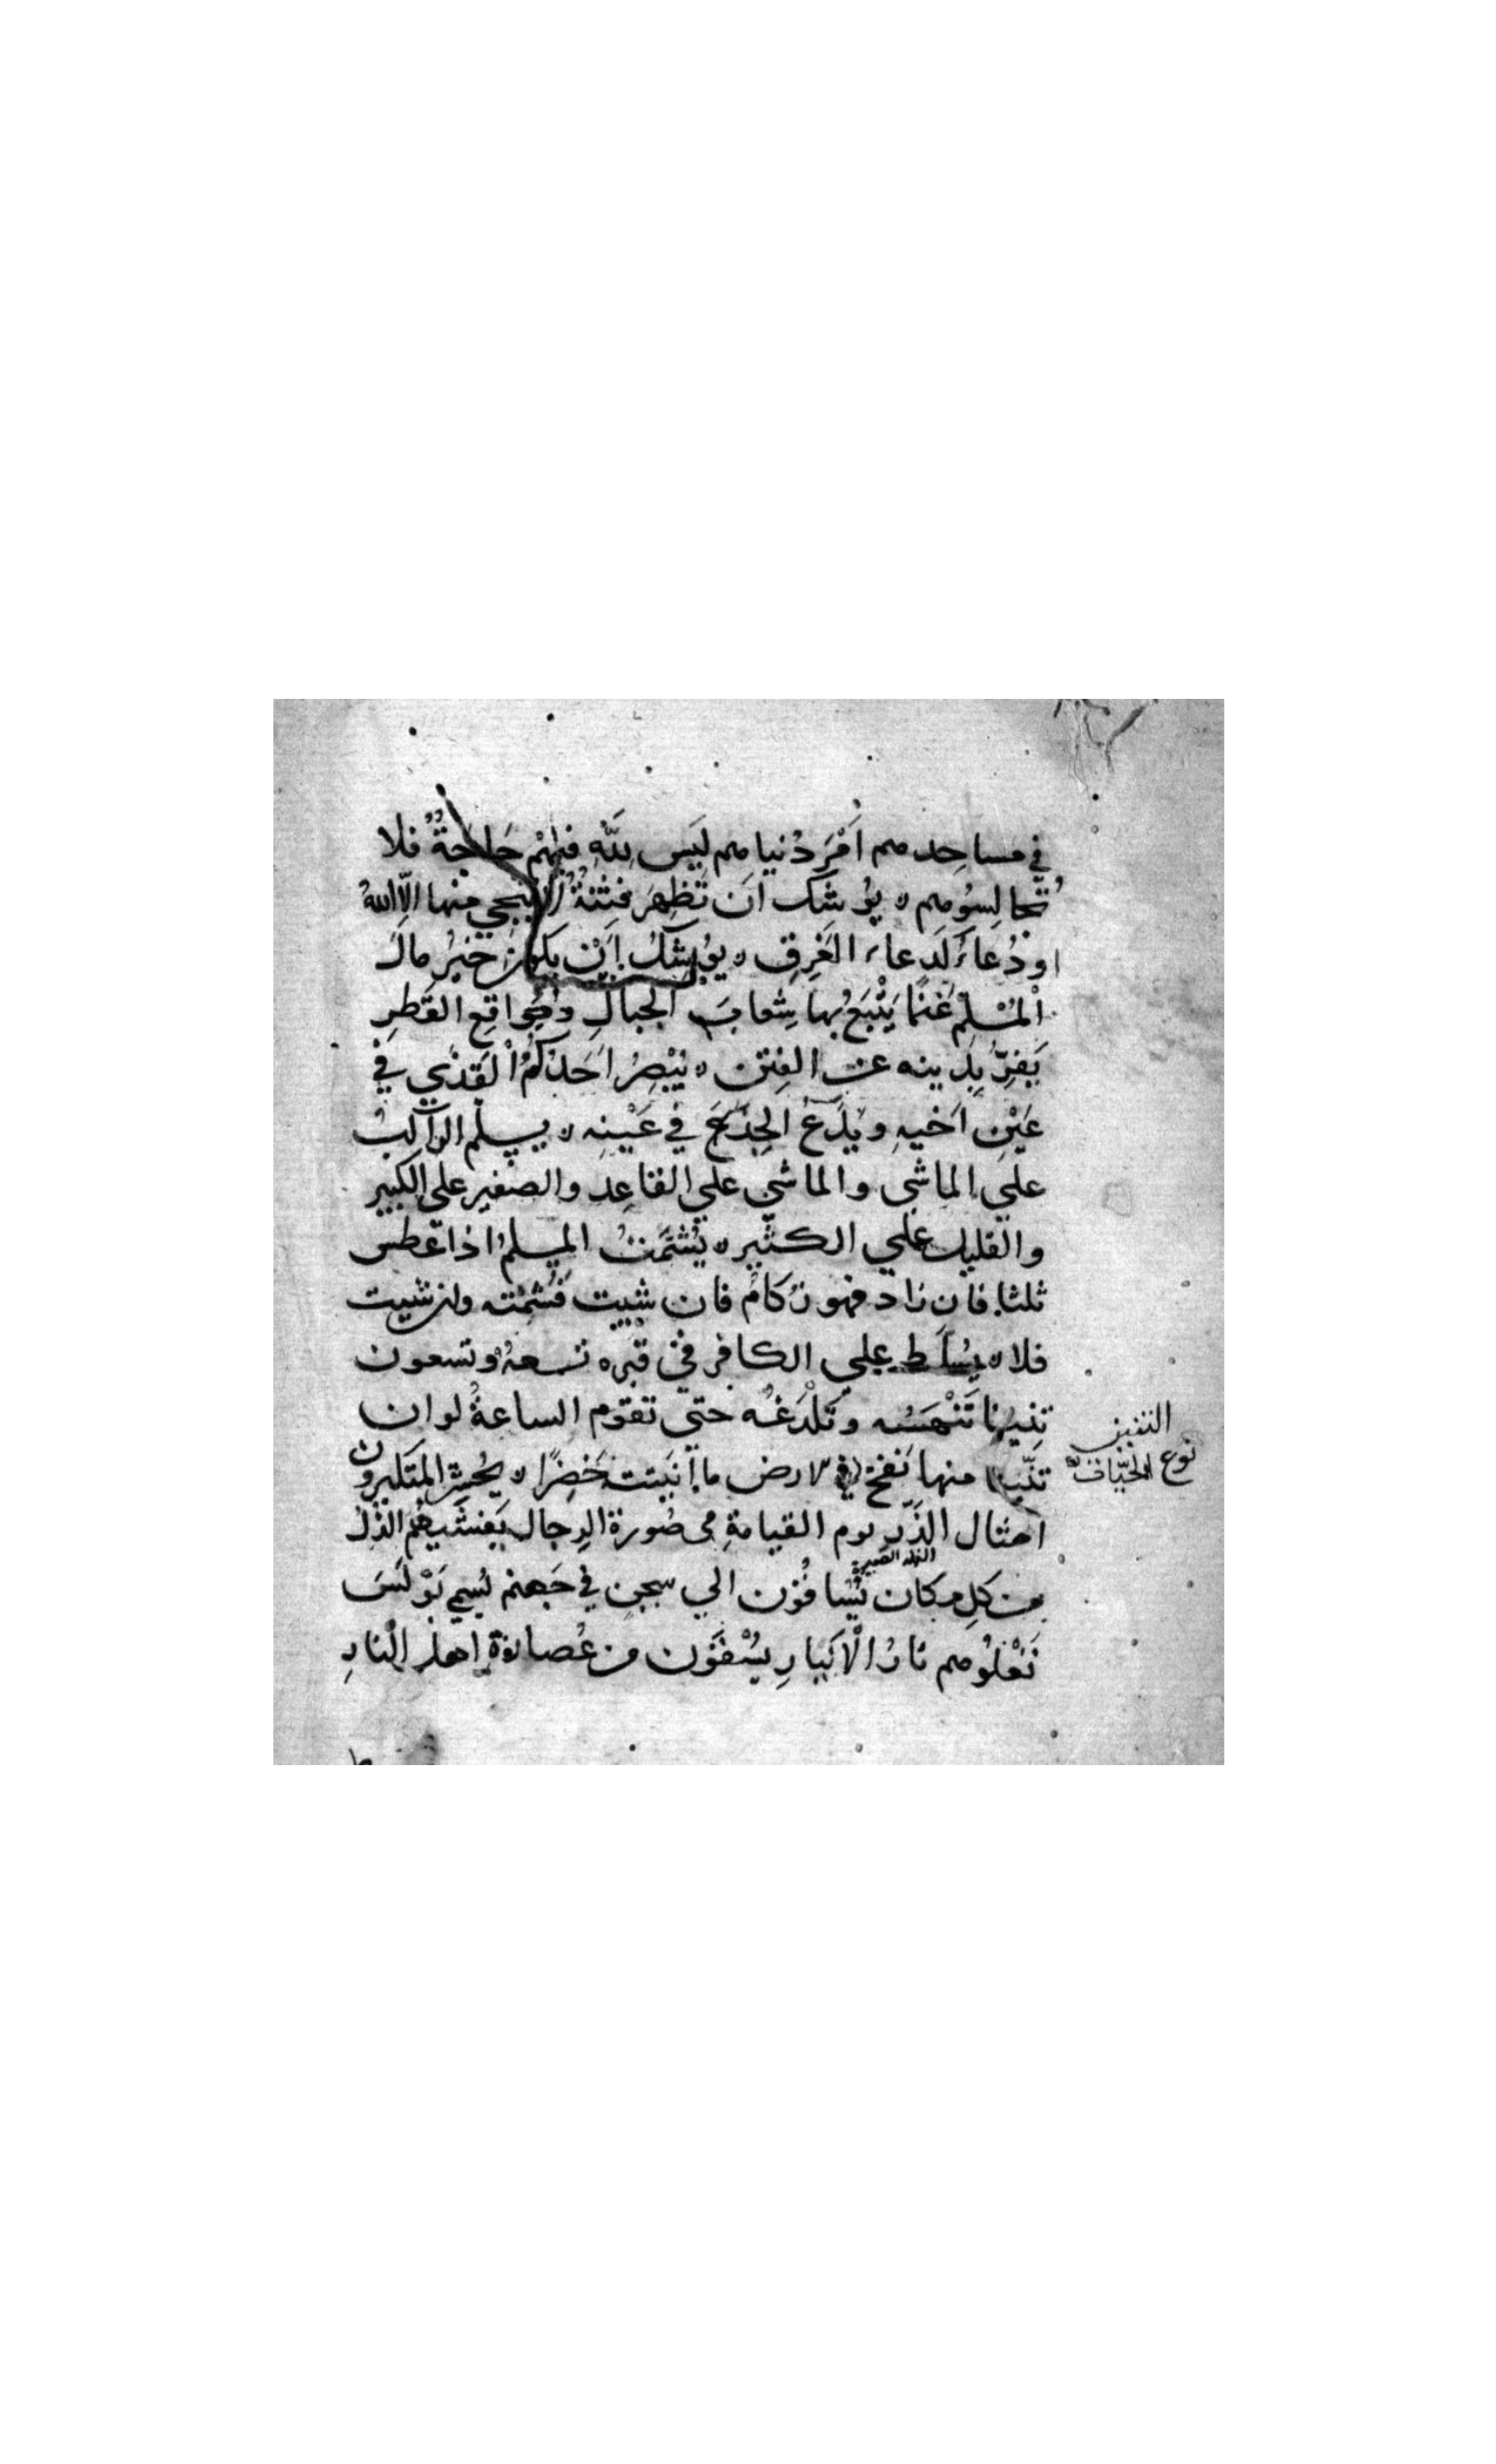 في مساجدهم اَمْرَ دُنياهم لَيسَ لِلّٰهِ فيهِمْ حَاجَةٌ فلا
تُجالِسُوهم ه يُوشك اَن تَظهرَ فتنَةٌ لا يُنجي منها الّا اللهُ
او دُعاءٌ كَدعاء الغَرِقِ ه يوُشكُ اَنْ يكون خيرُ مال
الْمُسْلم غَنمًا يَتْبَعُ بها شِعابَ الجبالِ ومَواقِعِ القَطرِ
يَفِرّ بِدينه عن الفِتن ه يُبْصِرُ اَحَدُكُمْ الْقَذَي في
عَيْنِ اَخيهِ ويَدَعُ الجِذعَ في عَيْنِه ه يسلم الراكبُ
علي الماشي والماشي علي القاعِد والصغير علي الكبير
والقليل علي الكثير ه يُشَمَّتُ المسلمُ اذا عَطس
ثلثا فان زاد فهو زكامٌ فان شيت فشَمِّته وان شيت
فلا ه يُسَلَط علي الكافر في قبره تسعةٌ وتسعون
تِنينًا تَنْهَسُه وتَلْدَغُه حتي تقوم الساعةُ لو ان
تنّينا منها نَفخ في الارض ما اَنبَتت خَضِرًا ه يُحشر المتكبرون
امثال الذَّر يوم القيامةِ في صُورة الرِجال يَغشَيهُم الذُّلُ
النمله الصغيرة
من كلِ مكان يُسَاقُوْن الي سجن في جَهنم يُسمي بَوْلَسَ
تَعْلُوهم نارُ الْاَنيارِ يُسْقَوْن من عُصارَةِ اهل النارِ
التنين
نوع الحيّات